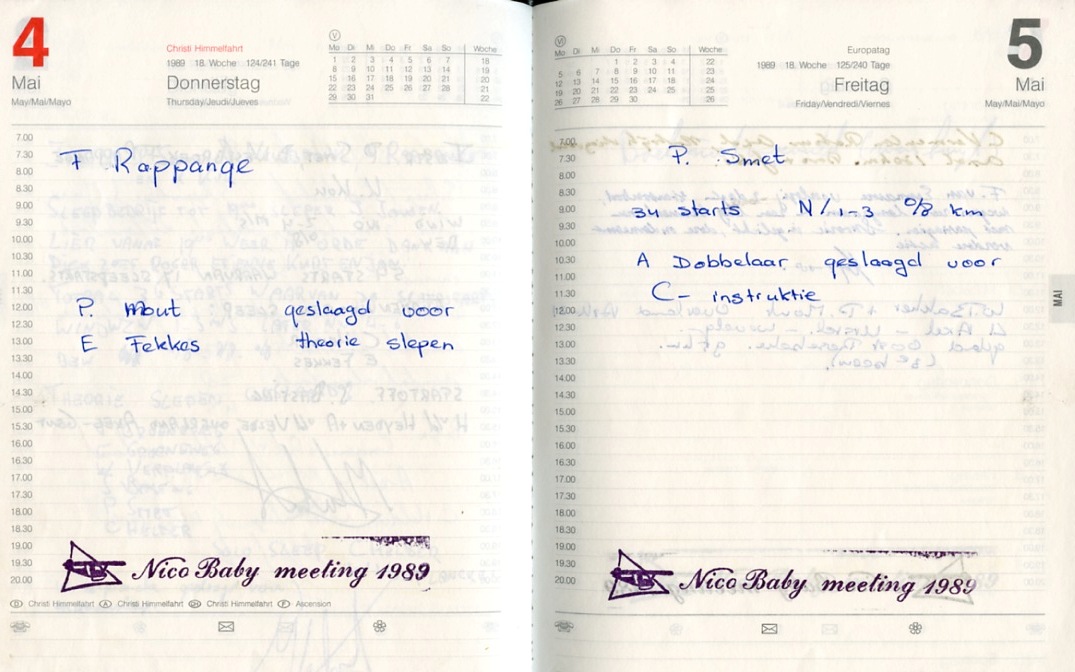 4
Mai
May/Mai/Mayo
Christi Himmelfahrt
1989 18. Woche 124/241 Tage
Donnerstag
Thursday/Jeudi/Jueves
V
Mo Di Mi Do Fr Sa So Woche
1 2 3 4 5 6 7 18
8 9 10 11 12 13 14 19
15 16 17 18 19 20 21 20
22 23 24 25 26 27 28 21
29 30 31 22
7.00
7.30
8.00
8.30
9.00
9.30
10.00
10.30
11.00
11.30
12.00
12.30
13.00
13.30
14.00
14.30
15.00
15.30
16.00
16.30
17.00
17.30
18.00
18.30
19.00
19.30
20.00
F Rappange
P. Mout geslaagd voor
E Fekkes theorie slepen
Nico Baby meeting 1989
D Christi Himmelfahrt A Christi Himmelfahrt CH Christi Himmelfahrt F Ascension
VI
Mo Di Mi Do Fr Sa So Woche
1 2 3 4 22
5 6 7 8 9 10 11 23
12 13 14 15 16 17 18 24
19 20 21 22 23 24 25 25
26 27 28 29 30 26
Europatag
1989 18. Woche 125/240 Tage
Freitag
Friday/Vendredi/Viernes
5
Mai
May/Mai/Mayo
7.00
7.30
8.00
8.30
9.00
9.30
10.00
10.30
11.00
11.30
12.00
12.30
13.00
13.30
14.00
14.30
15.00
15.30
16.00
16.30
17.00
17.30
18.00
18.30
19.00
19.30
20.00
P. Smet
34 starts N/1-3 km
A Dobbelaar geslaagd voor
C- instruktie
Nico Baby meeting 1989
MAI